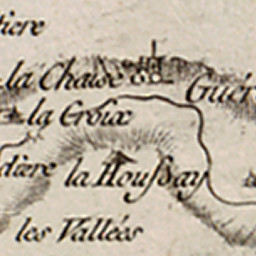 tiere
la Chaise
Guér
la Croix
dière
la Houſsay
les Vallées